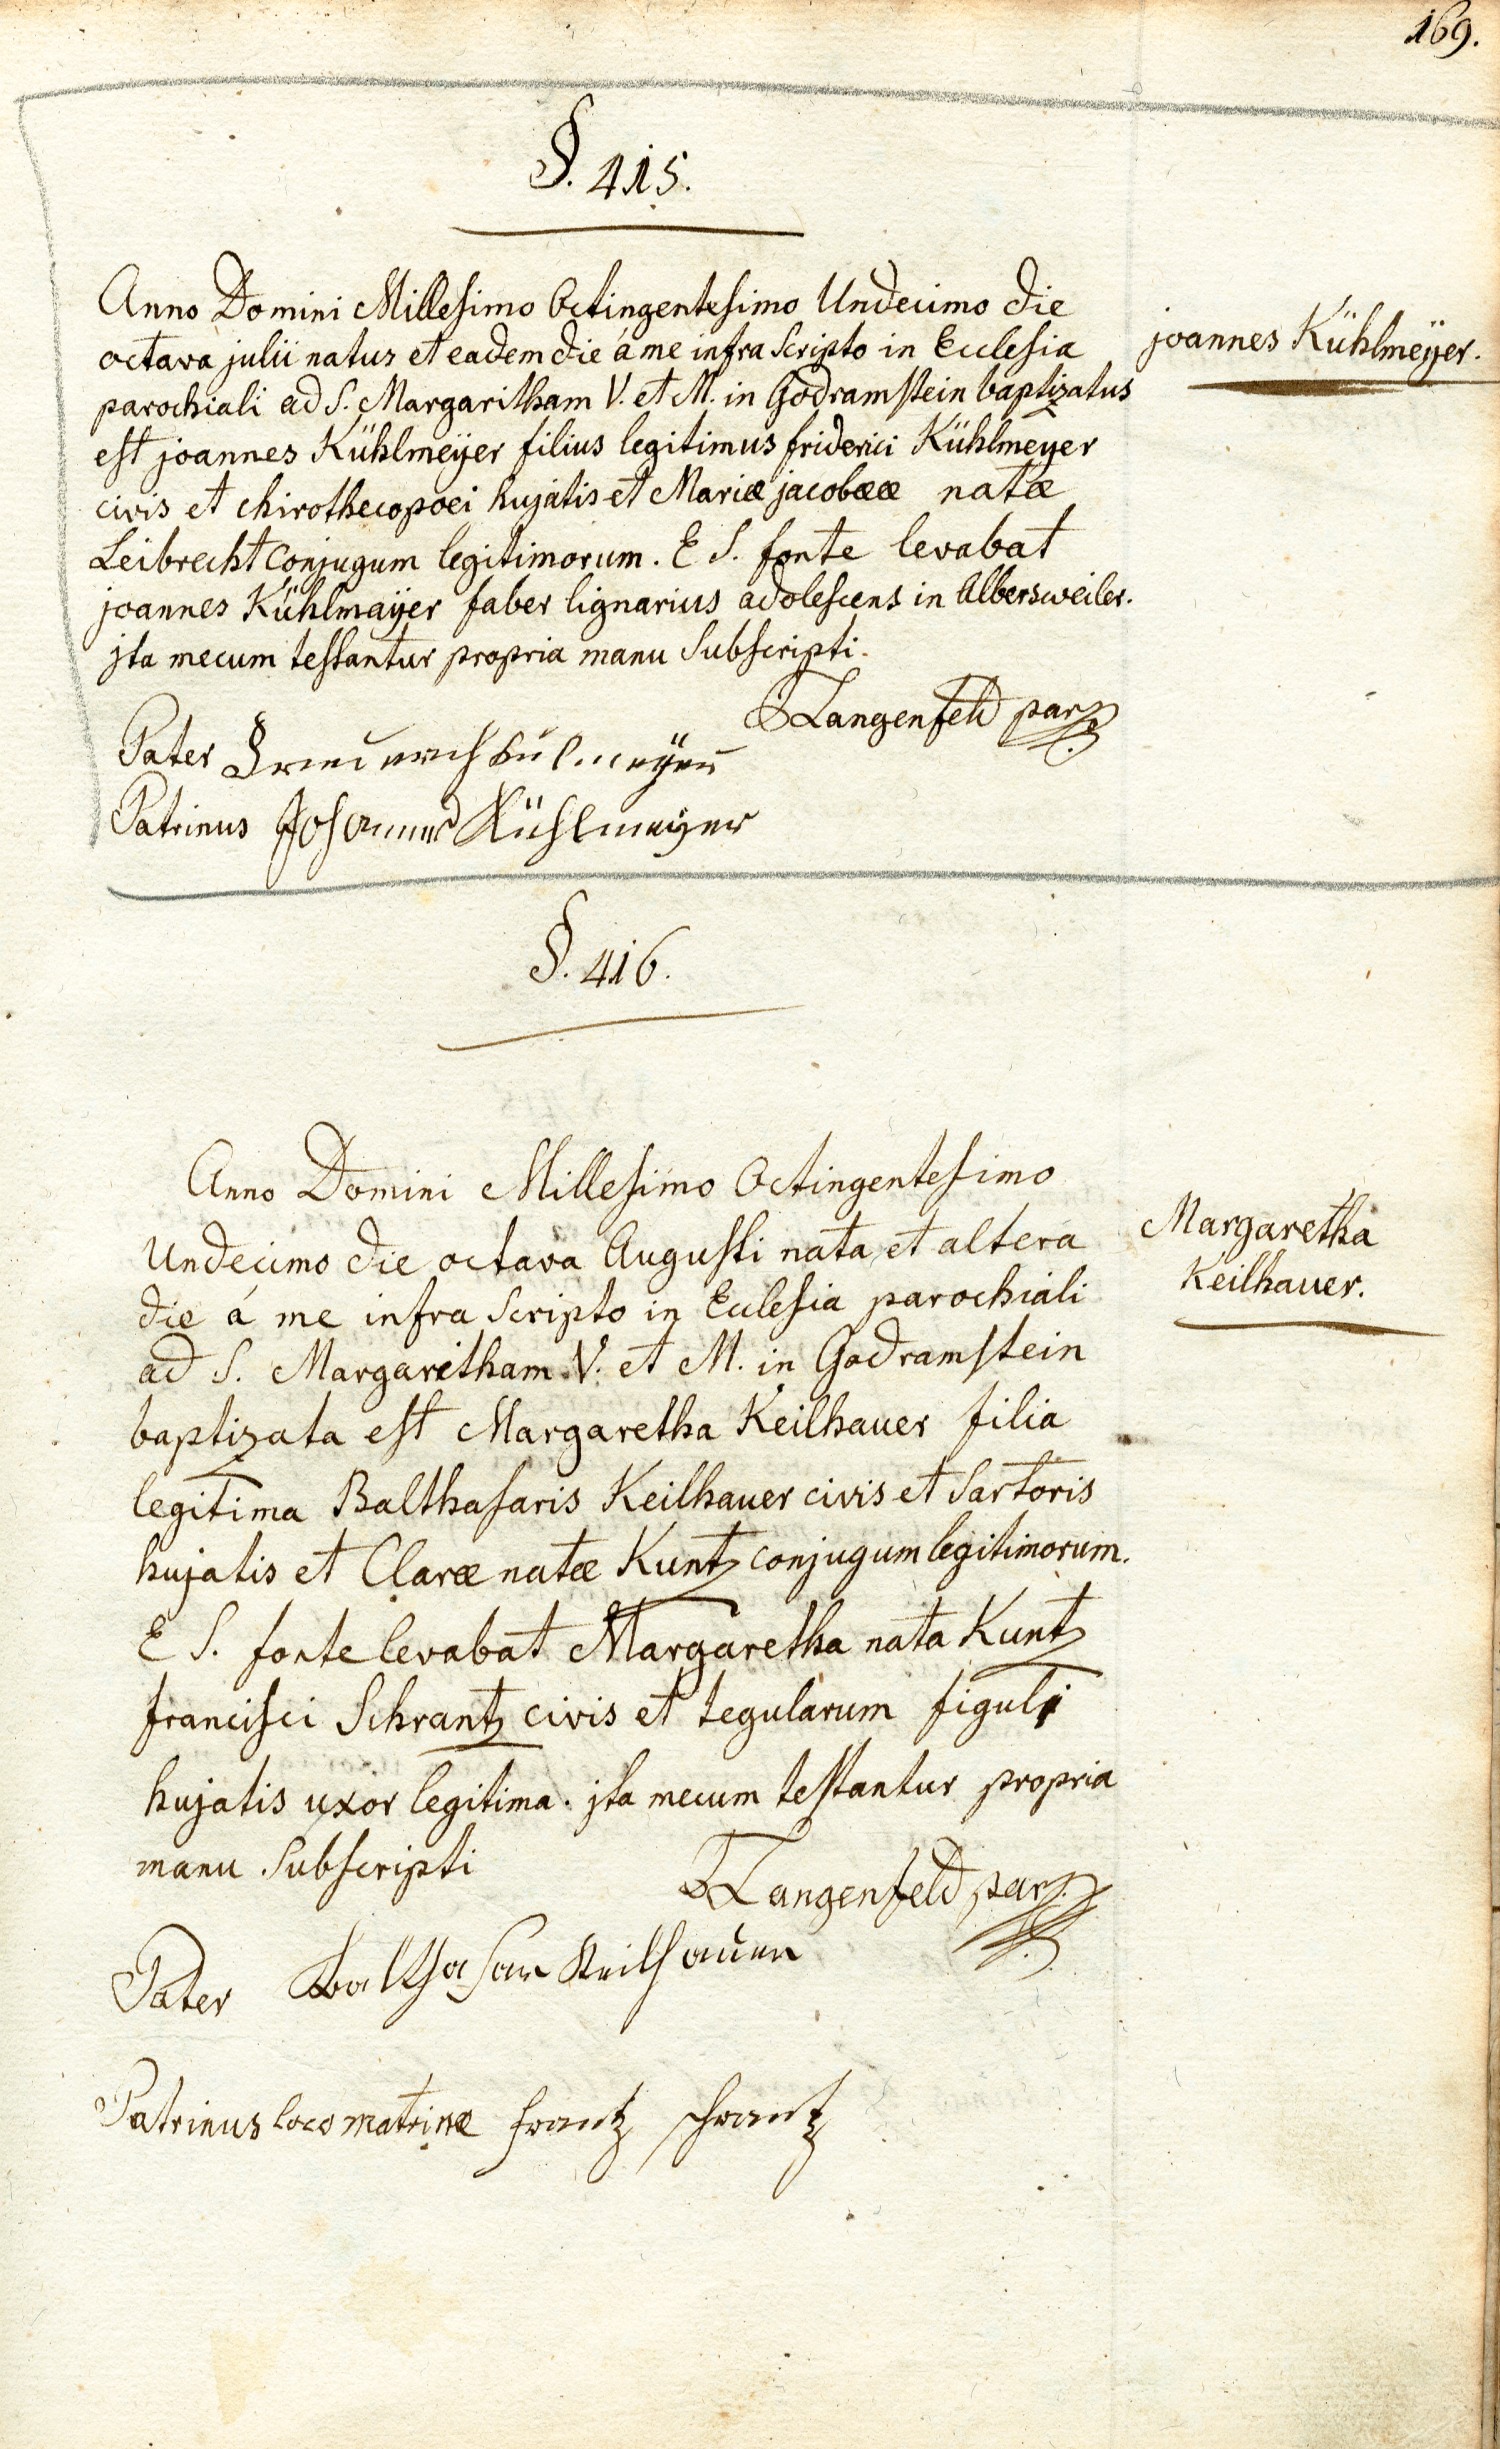 169.
§. 415.
Anno Domini Millesimo Octingentesimo Undecimo die
octava julii natus et eadem die á me infra Scripto in Ecclesia
parochiali ad S. Margaritham V. et M. in Godramstein baptizatus
est joannes Kühlmeÿer filius legitimus friderici Kühlmeyer
civis et chirothecopoei hujatis et Mariæ jacobææ natæ
Leibrecht conjugum legitimorum. E S. fonte levabat
joannes Kühlmaÿer faber lignarius adolescens in Albersweiler.
jta mecum testantur propria manu Subscripti.
joannes Kühlmeÿer.
Langenfeld par
Pater
Patrinus Johannes Kühlmeyer
§. 416.
Anno Domini Millesimo Octingentesimo
Undecimo die octava Augusti nata, et altera
die á me infra Scripto in Ecclesia parochiali
ad S. Margaritham V. et M. in Godramstein
baptizata est Margaretha Keilhauer filia
legitima Balthasaris Keilhauer civis et Sartoris
hujatis et Claræ natæ Kuntz conjugum legitimorum.
E S. fonte levabat Margaretha nata Kuntz
francisci Schrantz civis et tegularum figuli
hujatis uxor legitima. jta mecum testantur propria
manu Subscripti
Margaretha
Keilhauer.
Langenfeld par.
Pater Balthasar Keilhauer
Patrinus loco matrinæ frantz schrantz